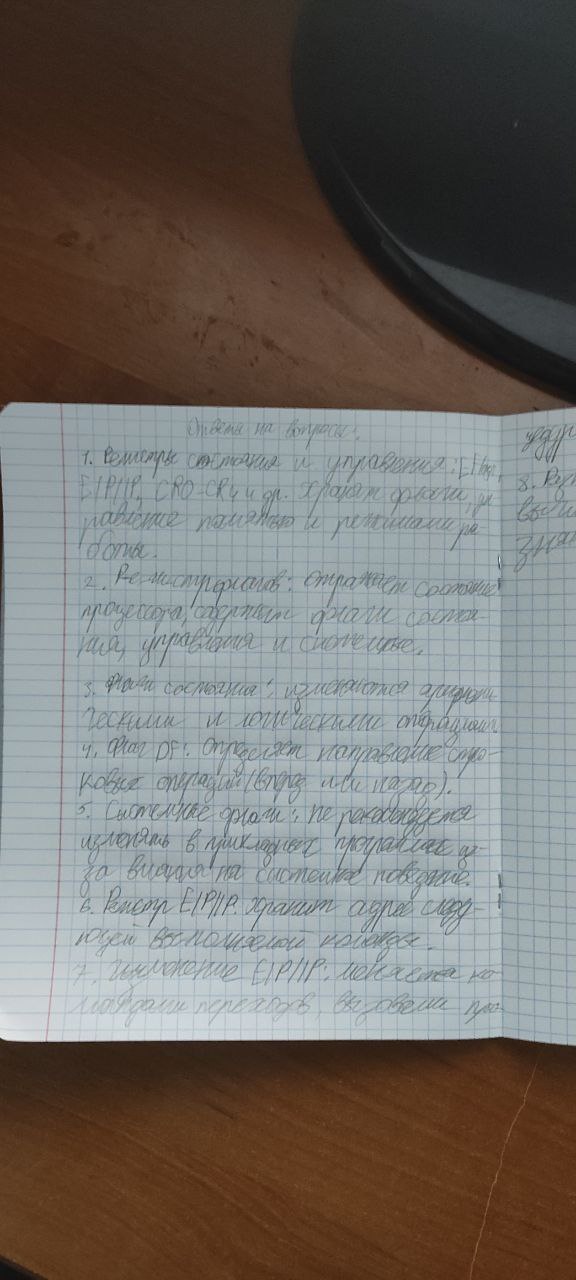 Ответы на вопросы:
1. Регистры состояния и управления: EFlags,
EIP/IP, CR0-CR4 и др. хранят флаги, уп
равление памятью и режимами ра
боты.
2. Регистр флагов: отражает состояние
процессора, содержит флаги состоя-
ния, управления и системные.
3. Флаги состояния: изменяются арифме
тическими и логическими операциями
4. Флаг DF: Определяет направление стро-
ковых операций (вперед или назад).
5. Системные флаги: не рекомендуется
изменять в прикладных программах из-
за влияния на системное поведение.
6. Регистр EIP/IP: хранит адрес следу-
ющей выполняемой команды.
7. Изменение EIP/IP: меняется ко
мандами переходов, вызовами про
цедур
8.